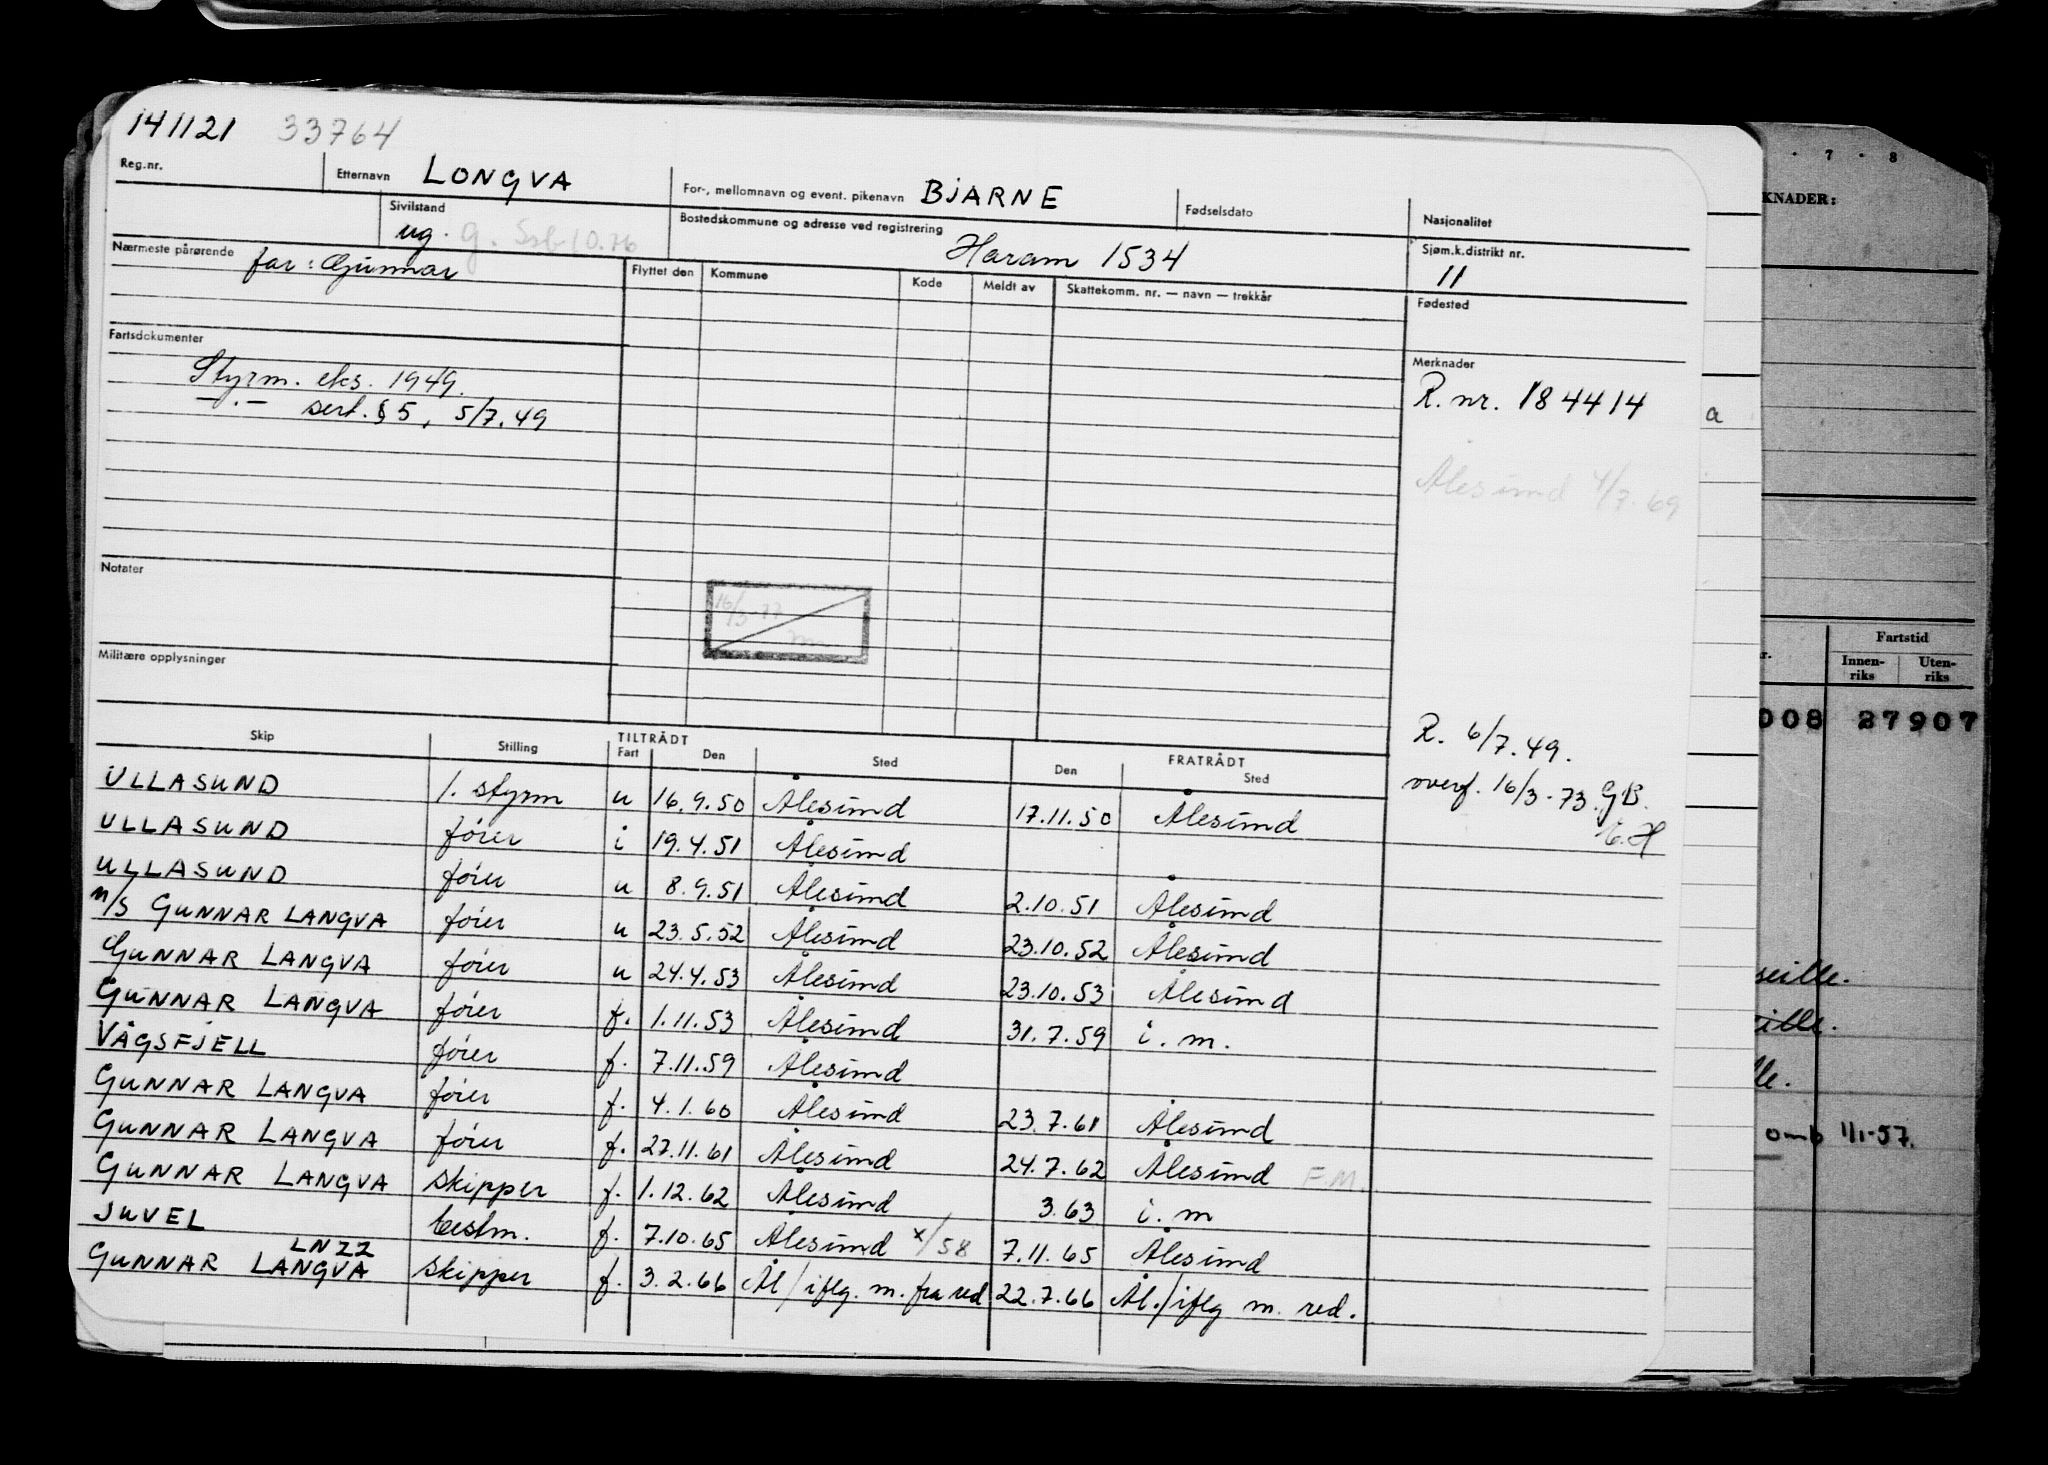 141121 33764
Reg.nr. Etternavn LONGVA For-, mellomnavn og event. pikenavn BJARNE Fødselsdato Nasjonalitet
Sivilstand ug. g. Bostedskommune og adresse ved registrering Haram 1534 Sjøm.k.distrikt nr. 11
Nærmeste pårørende far: Gunnar Flyttet den Kommune Kode Meldt av Skattekomm. nr. — navn — trekkår Fødested
Fartsdokumenter
Styrm. eks. 1949.
—.— sert. § 5, 5/7.49
Merknader
R. nr. 184414
Ålesund 4/7.69
Notater
16/3-77
Militære opplysninger
R. 6/7.49.
overf. 16/3-73 GB.
E.H
Skip Stilling TILTRÅDT Fart Den Sted FRATRÅDT Den Sted
ULLASUND 1. styrm u 16.9.50 Ålesund 17.11.50 Ålesund
ULLASUND fører i 19.4.51 Ålesund
ULLASUND fører u 8.9.51 Ålesund 2.10.51 Ålesund
M/S GUNNAR LANGVA fører u 23.5.52 Ålesund 23.10.52 Ålesund
GUNNAR LANGVA fører u 24.4.53 Ålesund 23.10.53 Ålesund
GUNNAR LANGVA fører f. 1.11.53 Ålesund 31.7.59 i. m.
VÅGSFJELL fører f. 7.11.59 Ålesund
GUNNAR LANGVA fører f. 4.1.60 Ålesund 23.7.61 Ålesund
GUNNAR LANGVA fører f. 27.11.61 Ålesund 24.7.62 Ålesund F.M
GUNNAR LANGVA skipper f. 1.12.62 Ålesund 3.63 i. m
JUVEL bestm. f. 7.10.65 Ålesund x/58 7.11.65 Ålesund
LNZZ
GUNNAR LANGVA skipper f. 3.2.66 Ål/iflg. m. fra red 22.7.66 Ål./iflg m. red.
7 8
KNADER:
a
Fartstid
r. Innen-riks Uten-riks
008 27907
seille.
eille.
lle.
omb 1/1-57.